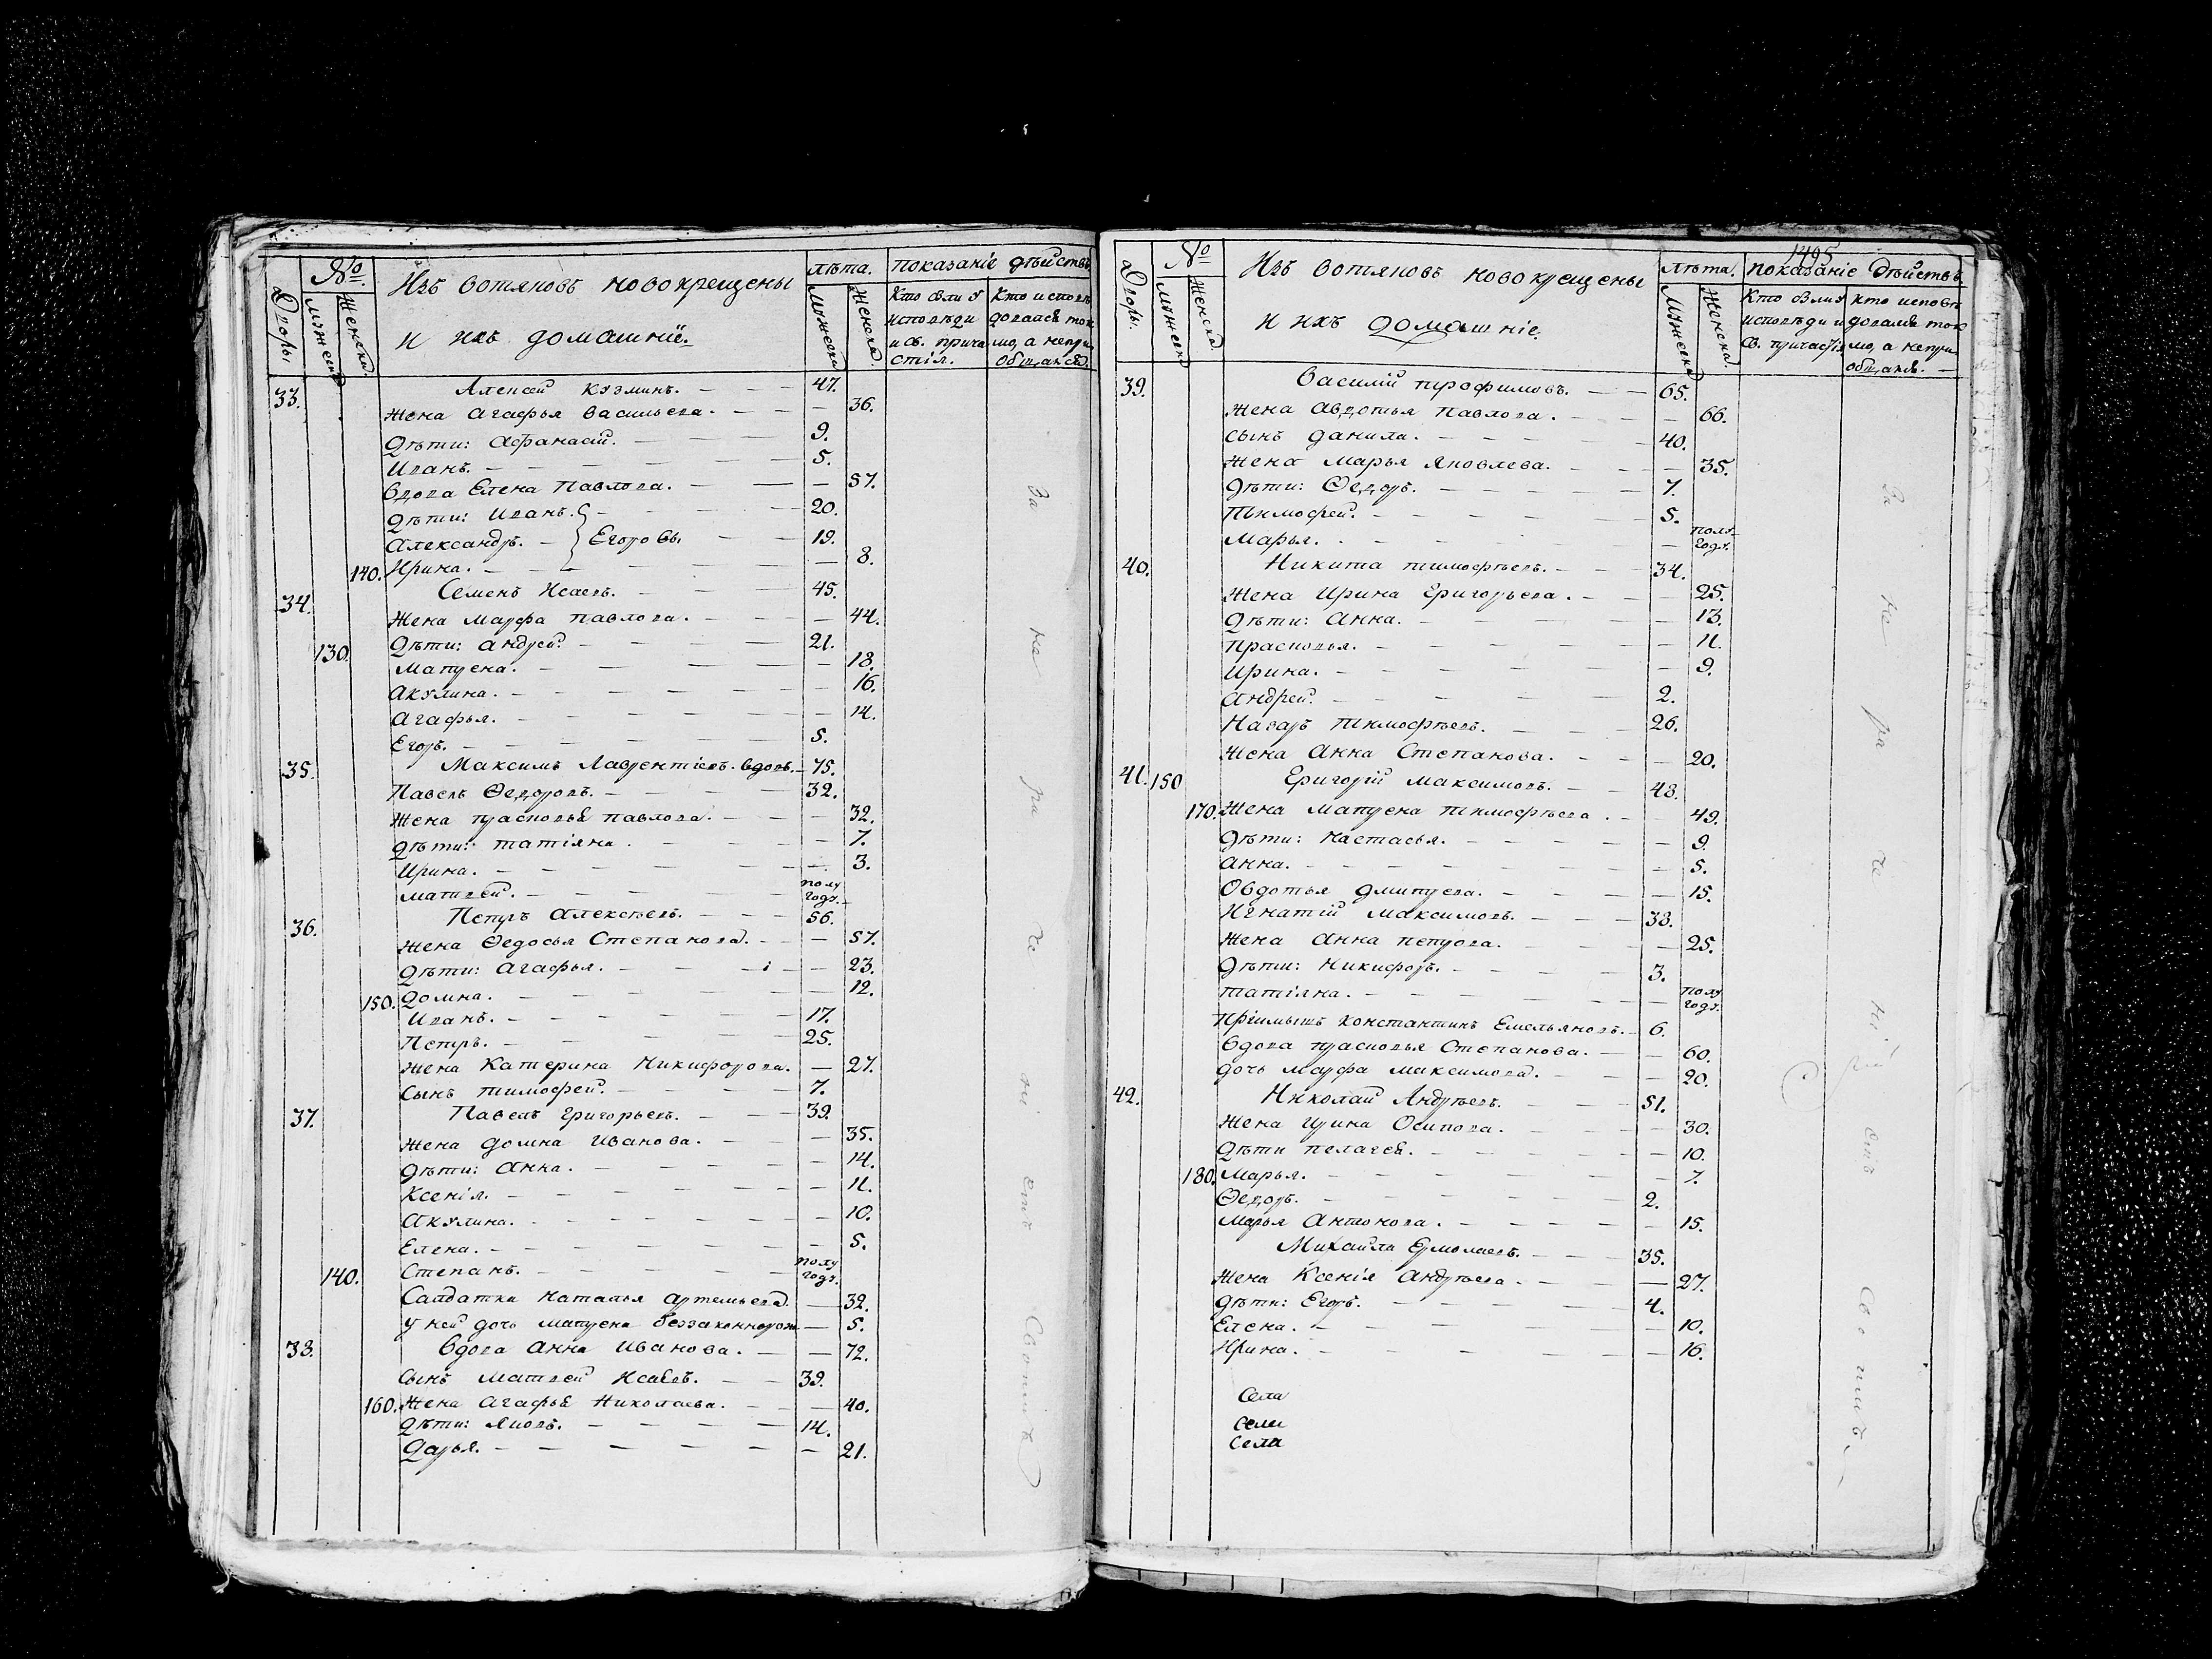 Дворы
№
Мужеск.
Женска.
Изъ вотяковъ новокрещены
и ихъ домашніе.
лѣта.
Мужеска
Женска.
показаніе дѣйствъ
Кто были у исповѣди и св. прича стія.
Кто исповѣ довался ток мо, а непри общался.
33. Алексей Кузминъ. — 47.
Жена Агафья Васильева. — 36.
Дѣти: Афанасій. — 9.
Иванъ. — 5.
Вдова Елена Павлова. — 57.
Дѣти: Иванъ. — 20.
Александръ. — } Егоровы — 19.
140. Ирина. — 8.
34. Семенъ Исаевъ. — 45.
Жена Марфа Павлова. — 44.
130. Дѣти: Андрей. — 21.
Матрена. — 18.
Акулина. — 16.
Агафья. — 14.
Егоръ. — 5.
35. Максимъ Лаврентіевъ вдовъ. — 75.
Павелъ Ѳедоровъ. — 32.
Жена Прасковья Павлова. — 32.
Дѣти: Татіяна. — 7.
Ирина. — 3.
Матвей. — полу годъ.
36. Петръ Алексѣевъ. — 56.
Жена Ѳедосья Степанова. — 57.
Дѣти: Агафья. — 23.
150. Домна. — 12.
Иванъ. — 17.
Петръ. — 25.
Жена Катерина Никифорова. — 27.
Сынъ Тимофей. — 7.
37. Павелъ Григорьевъ. — 39.
Жена Домна Иванова. — 35.
Дѣти: Анна. — 14.
Ксенія. — 11.
Акулина. — 10.
Елена. — 5.
140. Степанъ. — полу годъ.
Салдатка Наталья Артемьева. — 32.
У ней дочь Матрена беззаконнорож — 5.
38. Вдова Анна Иванова. — 72.
Сынъ Матвей Исаевъ. — 39.
160. Жена Агафья Николаева. — 40.
Дѣти: Яковъ. — 14.
Дарья. — 21.
За не ра че ні емъ Своимъ
1495
Дворы.
№
Мужеск
Женска.
Изъ вотяковъ новокрещены
и ихъ домашніе.
Лѣта.
Мужеска
Женска.
показаніе Дѣйствъ
Кто были у исповѣди и св. причастія
кто исповѣ довался ток мо, а непри общался. —
39. Василій Трофимовъ. — 65.
Жена Авдотья Павлова. — 66.
сынъ Данила. — 40.
Жена Марья Яковлева. — 35.
Дѣти: Ѳедоръ. — 7.
Тимофей. — 5.
Марья. — полу- годъ.
40. Никита Тимофѣевъ. — 34.
Жена Ирина Григорьева. — 25.
Дѣти: Анна. — 13.
Прасковья. — 11.
Ирина. — 9.
Андрей. — 2.
Назаръ Тимофѣевъ. — 26.
Жена Анна Степанова. — 20.
41. 150 Григорій Максимовъ. — 48.
170. Жена Матрена Тимофѣева. — 49.
Дѣти: Настасья. — 9.
Анна. — 5.
Овдотья Дмитрева. — 15.
Игнатій Максимовъ. — 38.
Жена Анна Петрова. — 25.
Дѣти: Никифоръ. — 3.
Татіяна. — полу годъ.
Пріимышъ Константинъ Емельяновъ. — 6.
Вдова Прасковья Степанова. — 60.
дочь Марфа Максимова. — 20.
42. Николай Андрѣевъ. — 51.
Жена Ирина Осипова. — 30.
Дѣти Пелагея. — 10.
180. Марья. — 7.
Ѳедоръ. — 2.
Марья Антонова. — 15.
Михайла Ермолаевъ. — 35.
Жена Ксенія Андрѣева. — 27.
Дѣти: Егоръ. — 4.
Елена. — 10.
Ирина. — 16.
Села
Села
Села
За не ра че ні емъ Сво имъ